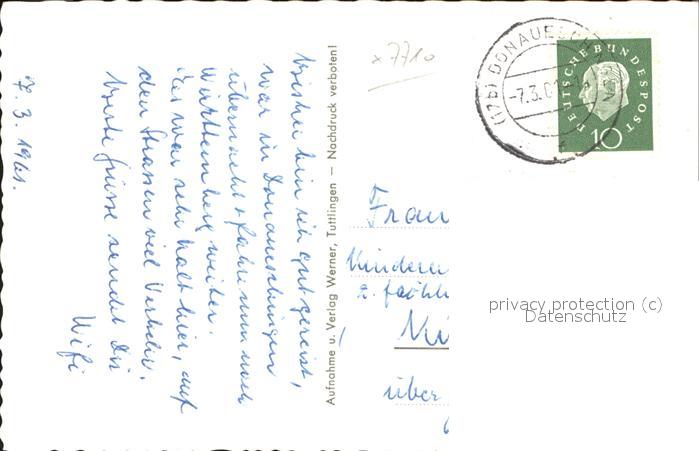 7. 3. 1961.
Bisher bin ich gut gereist,
war in Donaueschingen
übernachtet fahre nun nach
Württemberg weiter.
Es war sehr kalt hier, auf
den Strassen viel Verkehr.
Beste Grüsse sendet Dir
Wifi
Aufnahme u. Verlag Werner, Tuttlingen — Nachdruck verboten!
x 7710
(17b) DONAUESCH
-7.3.6
DEUTSCHE BUNDESPOST
10
Frau
Kindere
z. fröhl
über
privacy protection (c)
Datenschutz